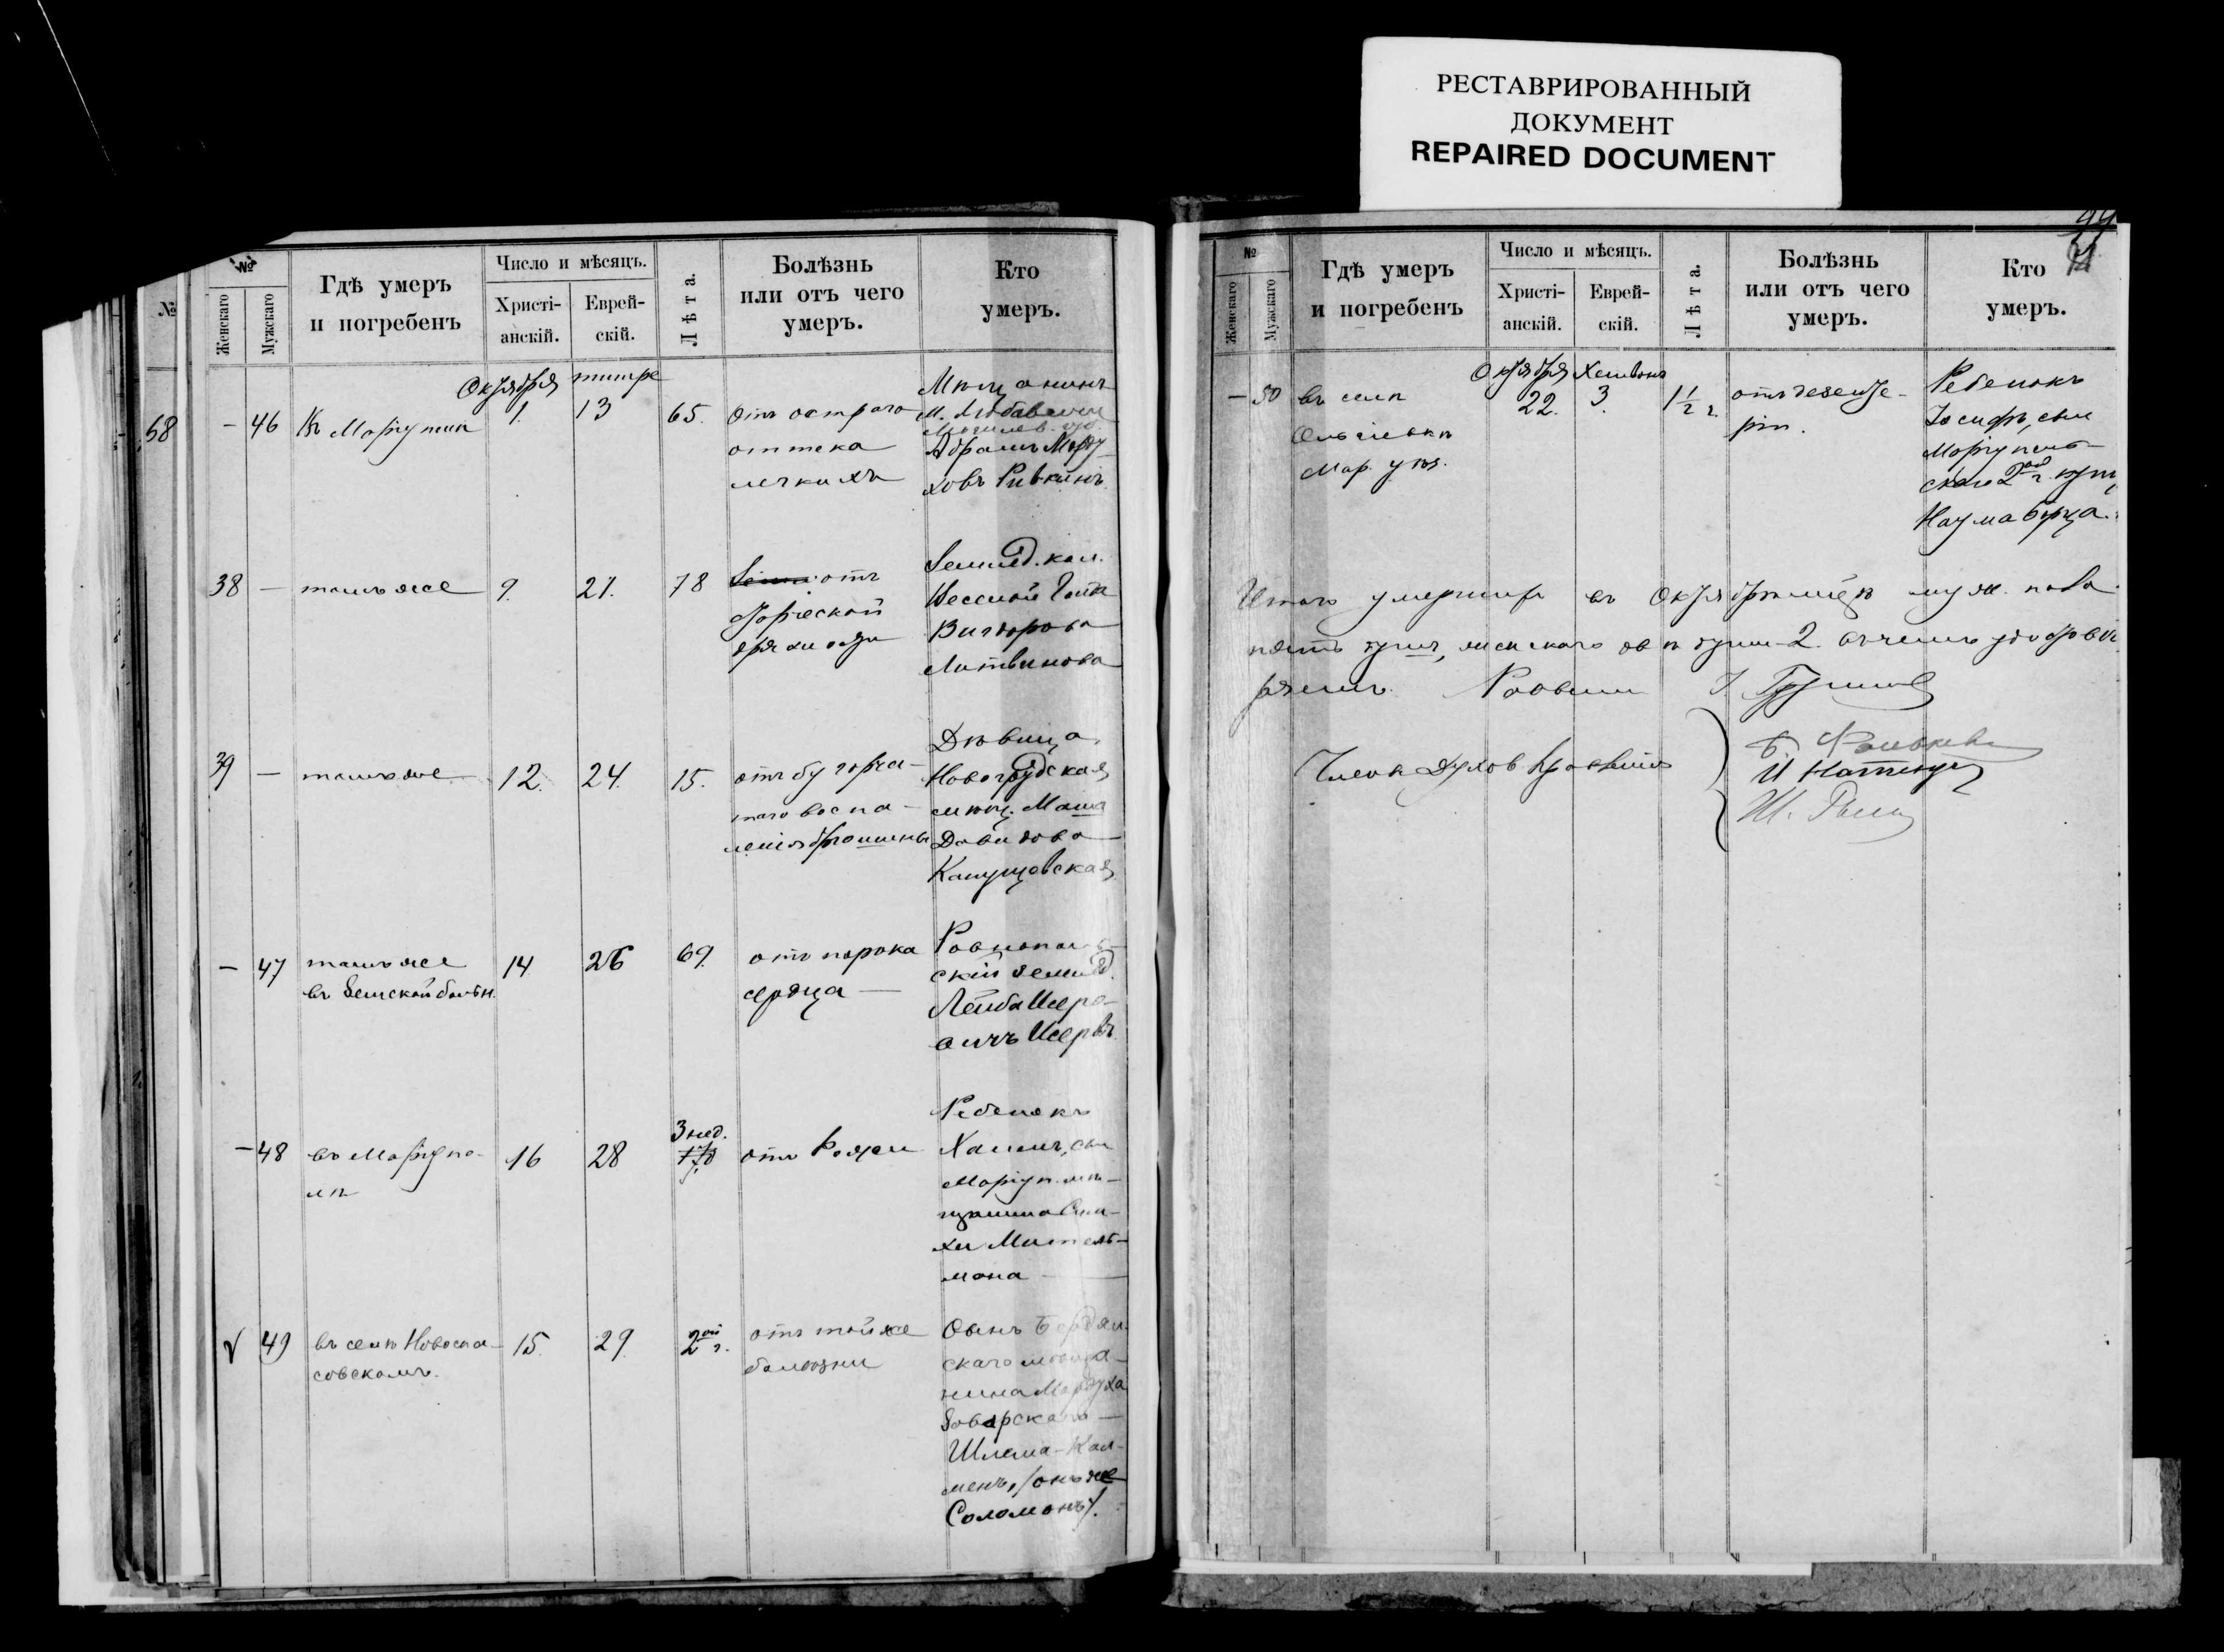 РЕСТАВРИРОВАННЫЙ
ДОКУМЕНТ
REPAIRED DOCUMENT
№
68
№
Женскаго
Мужскаго
Гдѣ умеръ
и погребенъ
Число и мѣсяцъ.
Христі-
анскій.
Еврей-
скій.
Лѣта.
Болѣзнь
или отъ чего
умеръ.
Кто
умеръ.
Октября тишре
— 46 Въ Маріуполѣ 1. 13 65.
Отъ остраго
оттека
легкихъ
Мѣщанинъ
м. Любавичи
Могилев. губ.
Абрамъ Морду-
ховъ Ривкинъ
38 — тамъ же 9. 21. 78
отъ
старческой
дряхлости
Землед. кол.
Витдорова
Литвинова
39 — тамъ же 12. 24. 15.
отъ бугорча-
таго воспа-
ленія брюшины
Дѣвица
Новогрудская
мѣщ. Маша
Давидова
Капущовская
— 47 тамъ же 14 26 69.
въ Земской больн.
отъ порока
сердца —
Ровнополь-
скій землед.
Лейба Исеро-
вичъ
— 48 въ Маріупо-
лѣ
16 28
3 нед.
отъ Рожи
Ребенокъ
Хаимъ, сын
Маріуп. мѣ-
щанина Сим-
хи Митель-
мана —
49 въ селѣ Новоспа-
совскомъ.
15. 29. 2ой г.
отъ той же
болѣзни
Сынъ Бердян-
скаго мѣща-
нина Мордуха
Зоварскаго —
Шлема-Кал-
менъ, /онъ же
Соломонъ/.
99
№
Женскаго
Мужскаго
Гдѣ умеръ
и погребенъ
Число и мѣсяцъ.
Христі-
анскій.
Еврей-
скій.
Лѣта.
Болѣзнь
или отъ чего
умеръ.
Кто
умеръ.
Октября Хешвонъ
— 50 въ селѣ
Ольгинкѣ
Мар. уѣз.
22. 3. 1 1/2 г.
отъ дезенте-
ріи.
Ребенокъ
Іосифъ, сын
Маріуполь-
скаго 2ой г. купц.
Наума
Итого умершихъ въ Октябрѣ м-цѣ муж. пола
пять душъ, женскаго двѣ души 2. въ чемъ удостовѣ-
ряемъ. Раввинъ
Члены Духов. Правленія